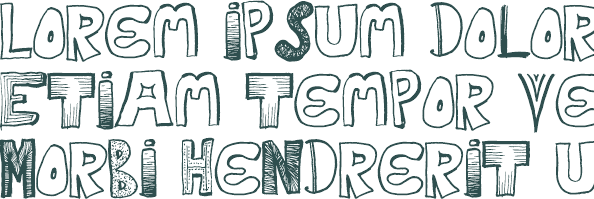 Lorem ipSum Dolor
Etiam Tempor Ve
Morbi Hendrerit u